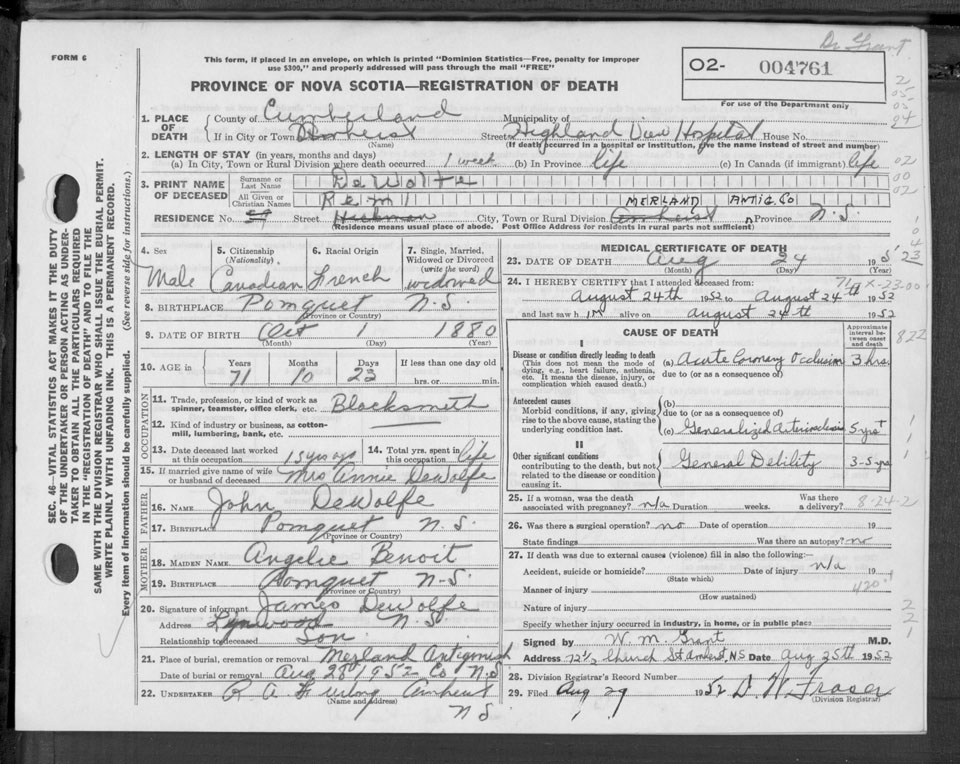 Dr Grant
FORM 6
This form, if placed in an envelope, on which is printed "Dominion Statistics—Free, penalty for improper
use $300," and properly addressed will pass through the mail "FREE"
O2- 004761
PROVINCE OF NOVA SCOTIA—REGISTRATION OF DEATH
For use of the Department only
1. PLACE OF DEATH County of Cumberland Municipality of
If in City or Town Amherst Street Highland View Hospital House No.
(Name) (If death occurred in a hospital or institution, give the name instead of street and number)
2. LENGTH OF STAY (in years, months and days)
(a) In City, Town or Rural Division where death occurred 1 week (b) In Province life (c) In Canada (if immigrant) life
3. PRINT NAME OF DECEASED Surname or Last Name DeWolfe
All Given or Christian Names Remi
MERLAND ANTIG. CO
RESIDENCE No. 59 Street Hickman City, Town or Rural Division Amherst Province N.S.
(Residence means usual place of abode. Post Office Address for residents in rural parts not sufficient)
SEC. 46—VITAL STATISTICS ACT MAKES IT THE DUTY
OF THE UNDERTAKER OR PERSON ACTING AS UNDER-
TAKER TO OBTAIN ALL THE PARTICULARS REQUIRED
IN THE "REGISTRATION OF DEATH" AND TO FILE THE
SAME WITH THE DIVISION REGISTRAR WHO SHALL ISSUE THE BURIAL PERMIT.
WRITE PLAINLY WITH UNFADING INK. THIS IS A PERMANENT RECORD.
Every item of information should be carefully supplied. (See reverse side for instructions.)
4. Sex 5. Citizenship (Nationality) 6. Racial Origin 7. Single, Married, Widowed or Divorced (write the word)
Male Canadian French widowed
8. BIRTHPLACE Pomquet N.S.
(Province or Country)
9. DATE OF BIRTH Oct 1 1880
(Month) (Day) (Year)
10. AGE in Years Months Days If less than one day old
71 10 23 hrs. or min.
OCCUPATION
11. Trade, profession, or kind of work as spinner, teamster, office clerk, etc. Blacksmith
12. Kind of industry or business, as cotton-mill, lumbering, bank, etc.
13. Date deceased last worked at this occupation 15 yrs ago 14. Total yrs. spent in this occupation life
15. If married give name of wife or husband of deceased Mrs Annie DeWolfe
FATHER
16. NAME John DeWolfe
17. BIRTHPLACE Pomquet N.S.
(Province or Country)
MOTHER
18. MAIDEN NAME Angelie Benoit
19. BIRTHPLACE Pomquet N-S.
(Province or Country)
20. Signature of informant James DeWolfe
Address Lynwood N.S.
Relationship to deceased Son
21. Place of burial, cremation or removal Merland Antigonish
Date of burial or removal Aug 28 1952 Co N.S
22. UNDERTAKER R A Furlong Amherst
(Name and Address) N S.
MEDICAL CERTIFICATE OF DEATH
23. DATE OF DEATH Aug 24 195
(Month) (Day) (Year)
24. I HEREBY CERTIFY that I attended deceased from:
August 24th 1952 to August 24th 1952
and last saw him alive on august 24th 1952
CAUSE OF DEATH
Approximate interval between onset and death
I
Disease or condition directly leading to death
(This does not mean the mode of dying, e.g., heart failure, asthenia, etc. It means the disease, injury, or complication which caused death.)
(a) Acute Coronary Occlusion 3 hrs.
due to (or as a consequence of)
Antecedent causes
Morbid conditions, if any, giving rise to the above cause, stating the underlying condition last.
(b)
due to (or as a consequence of)
(c) Generalized Arteriosclerosis 5 yrs+
II
Other significant conditions
contributing to the death, but not related to the disease or condition causing it.
General Debility 3-5 yrs
25. If a woman, was the death associated with pregnancy? n/a Duration weeks. Was there a delivery?
8-24-2
26. Was there a surgical operation? no Date of operation 19
State findings Was there an autopsy? no
27. If death was due to external causes (violence) fill in also the following:—
Accident, suicide or homicide? Date of injury n/a 19
(State which)
Manner of injury 420
(How sustained)
Nature of injury
Specify whether injury occurred in industry, in home, or in public place
Signed by W. M. Grant M.D.
Address 72½ Church St Amherst, NS Date Aug 25th 1952
28. Division Registrar's Record Number
29. Filed Aug 29 1952 D. W. Fraser
(Division Registrar)